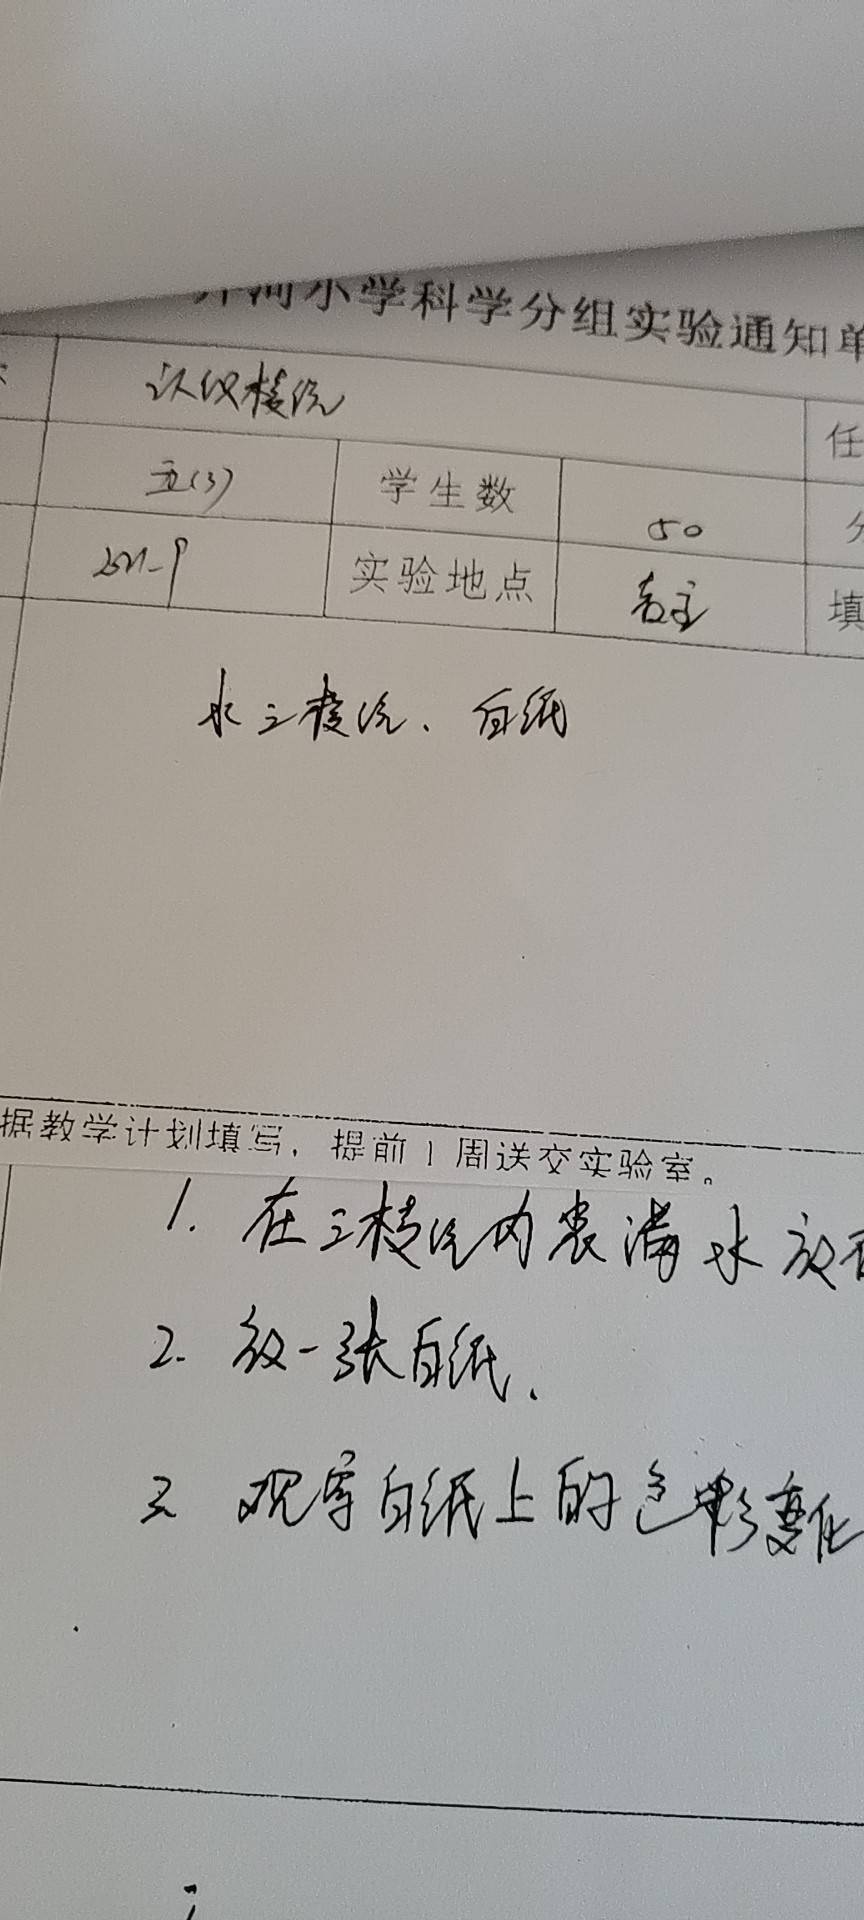 河小学科学分组实验通知单
认识棱镜 任
五(3) 学生数 50
实验地点 填
水三棱镜、白纸
据教学计划填写，提前1周送交实验室。
1. 在三棱镜内装满水放
2. 放一张白纸.
3 观察白纸上的色彩变化